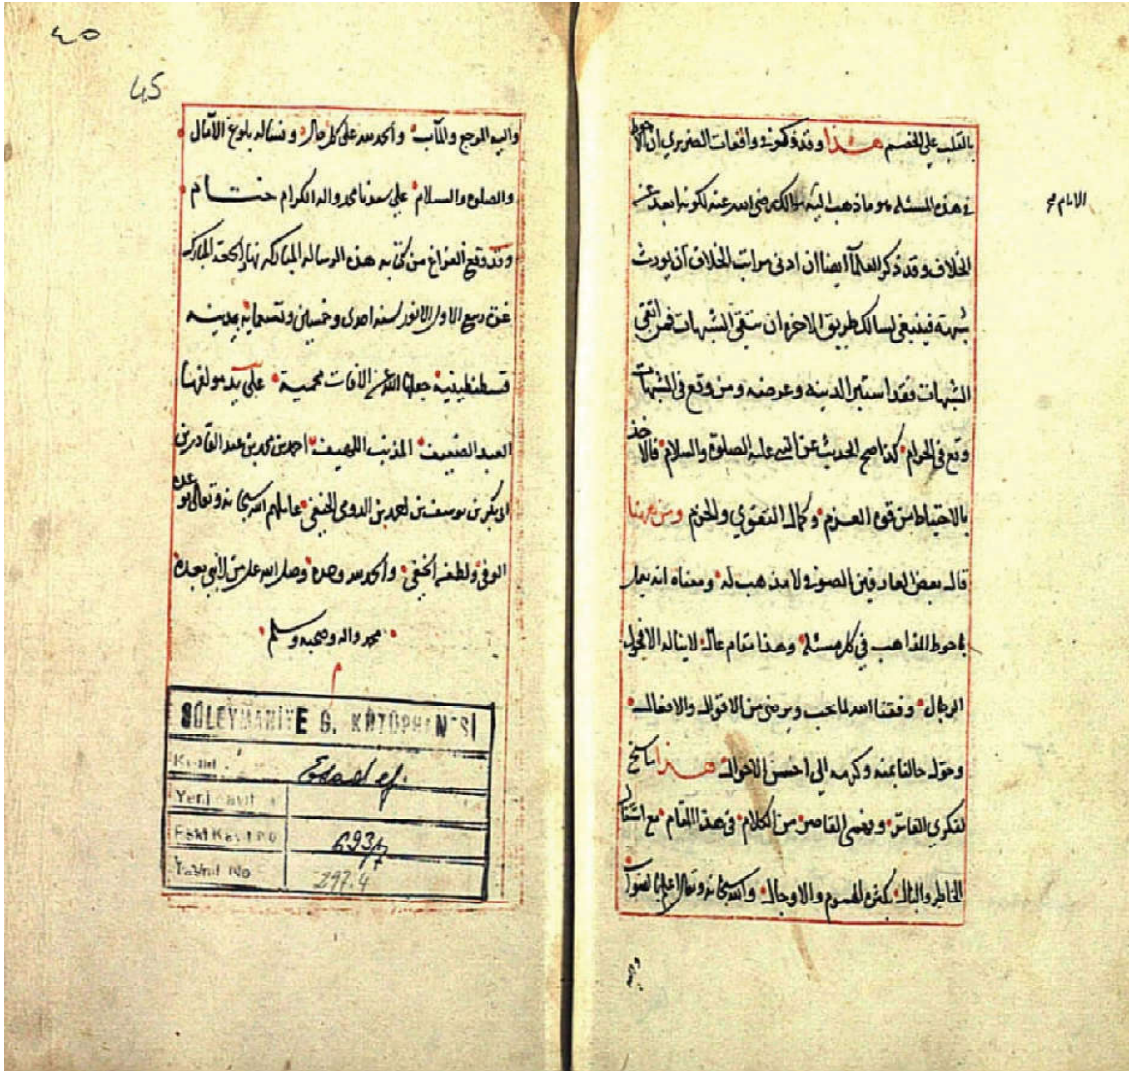 بالقلب على الخصم هذا وقد ذكر في واقعات الضريري ان الاحوط
في هذه المسئلة هو ما ذهب اليه مالك رضى الله عنه لكونه ابعد عن
الامام محمد
الخلاف وقد ذكر العلما ايضا ان ادنى مراتب الخلاف ان يورث
شبهة فينبغى لسالك طريق الاخره ان يتقى الشبهات فمن اتقى
الشبهات فقد استبرا لدينه وعرضه ومن وقع فى الشبهات
وقع فى الحرام كذا صح الحديث عن النبى عليه الصلوة والسلام فالاخذ
بالاحتياط من قوة العزم وكمال التقوي والحزم ومن ههنا
قال بعض العارفين الصوفى لا مذهب له ومعناه انه يعمل
باحوط المذاهب في كل مسئلة وهذا مقام عال لا يناله الا فحول
الرجال وفقنا الله لما يحب ويرضى من الاقوال والافعال
وحول حالنا بمنه وكرمه الي احسن الاحوال هذا ما سنح
لفكري الفاتر وفهمى القاصر من الكلام فى هذا المقام مع اشتغال
الخاطر والبال بكثرة الهموم والاوجال والله سبحانه وتعالى اعلم بالصواب
واليه
٤٥
45
واليه المرجع والمآب والحمد لله على كل حال ونساله بلوغ الآمال
والصلوة والسلام علي سيدنا محمد واله الكرام ختام
وقد وقع الفراغ من كتابه هذه الرساله المباركه نهار الجمعة المباركه
غرة ربيع الاول الانور لسنه احدى وخمسين وتسعمايه بمدينه
قسطنطينية جعلها الله عن الافات محمية على يد مولفها
العبد الضعيف المذنب اللهيف احمد بن محمد بن عبد القادر بن
ابى بكر بن يوسف بن احمد بن الرومى الحنفى عاملهم الله سبحانه وتعالى بوعده
الوفى ولطفه الخفى والحمد لله وحده وصلى الله على من لا نبي بعده
محمد واله وصحبه وسلم
م
SÜLEYMANİYE G. KÜTÜPHANESİ
Kısmı
Esad ef.
Yeni Kayıt No
Eski Kayıt No
693/7
Tasnif No
297.4